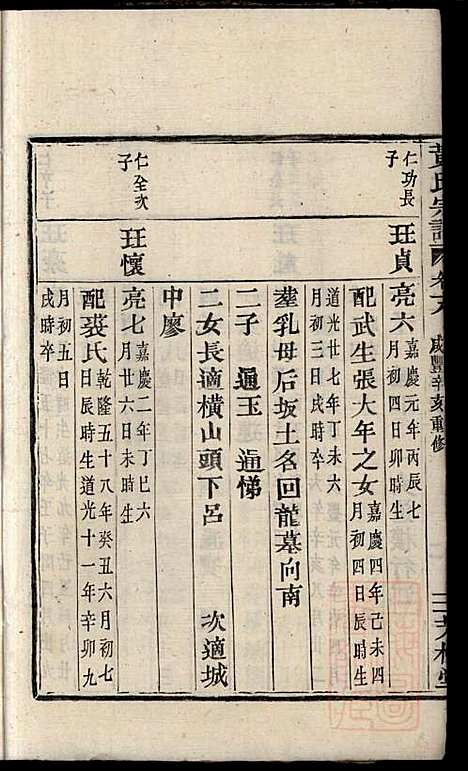 黃氏宗譜 卷之 咸豐辛亥重修
仁功長子
珏貞
亮六 嘉慶元年丙辰七月初四日卯時生
配武生張大年之女 嘉慶四年己未四月初四日辰時生
道光廿七年丁未六月初三日戌時卒
葬乳母后坂土名回龍墓向南
二子 通玉 通悌
二女長適橫山頭下呂 次適城
中廖
仁全次子
珏懷
亮七 嘉慶二年丁巳六月廿六日未時生
配裘氏 乾隆五十八年癸丑六月初七日辰時生道光十一年辛卯九
月初五日戌時卒